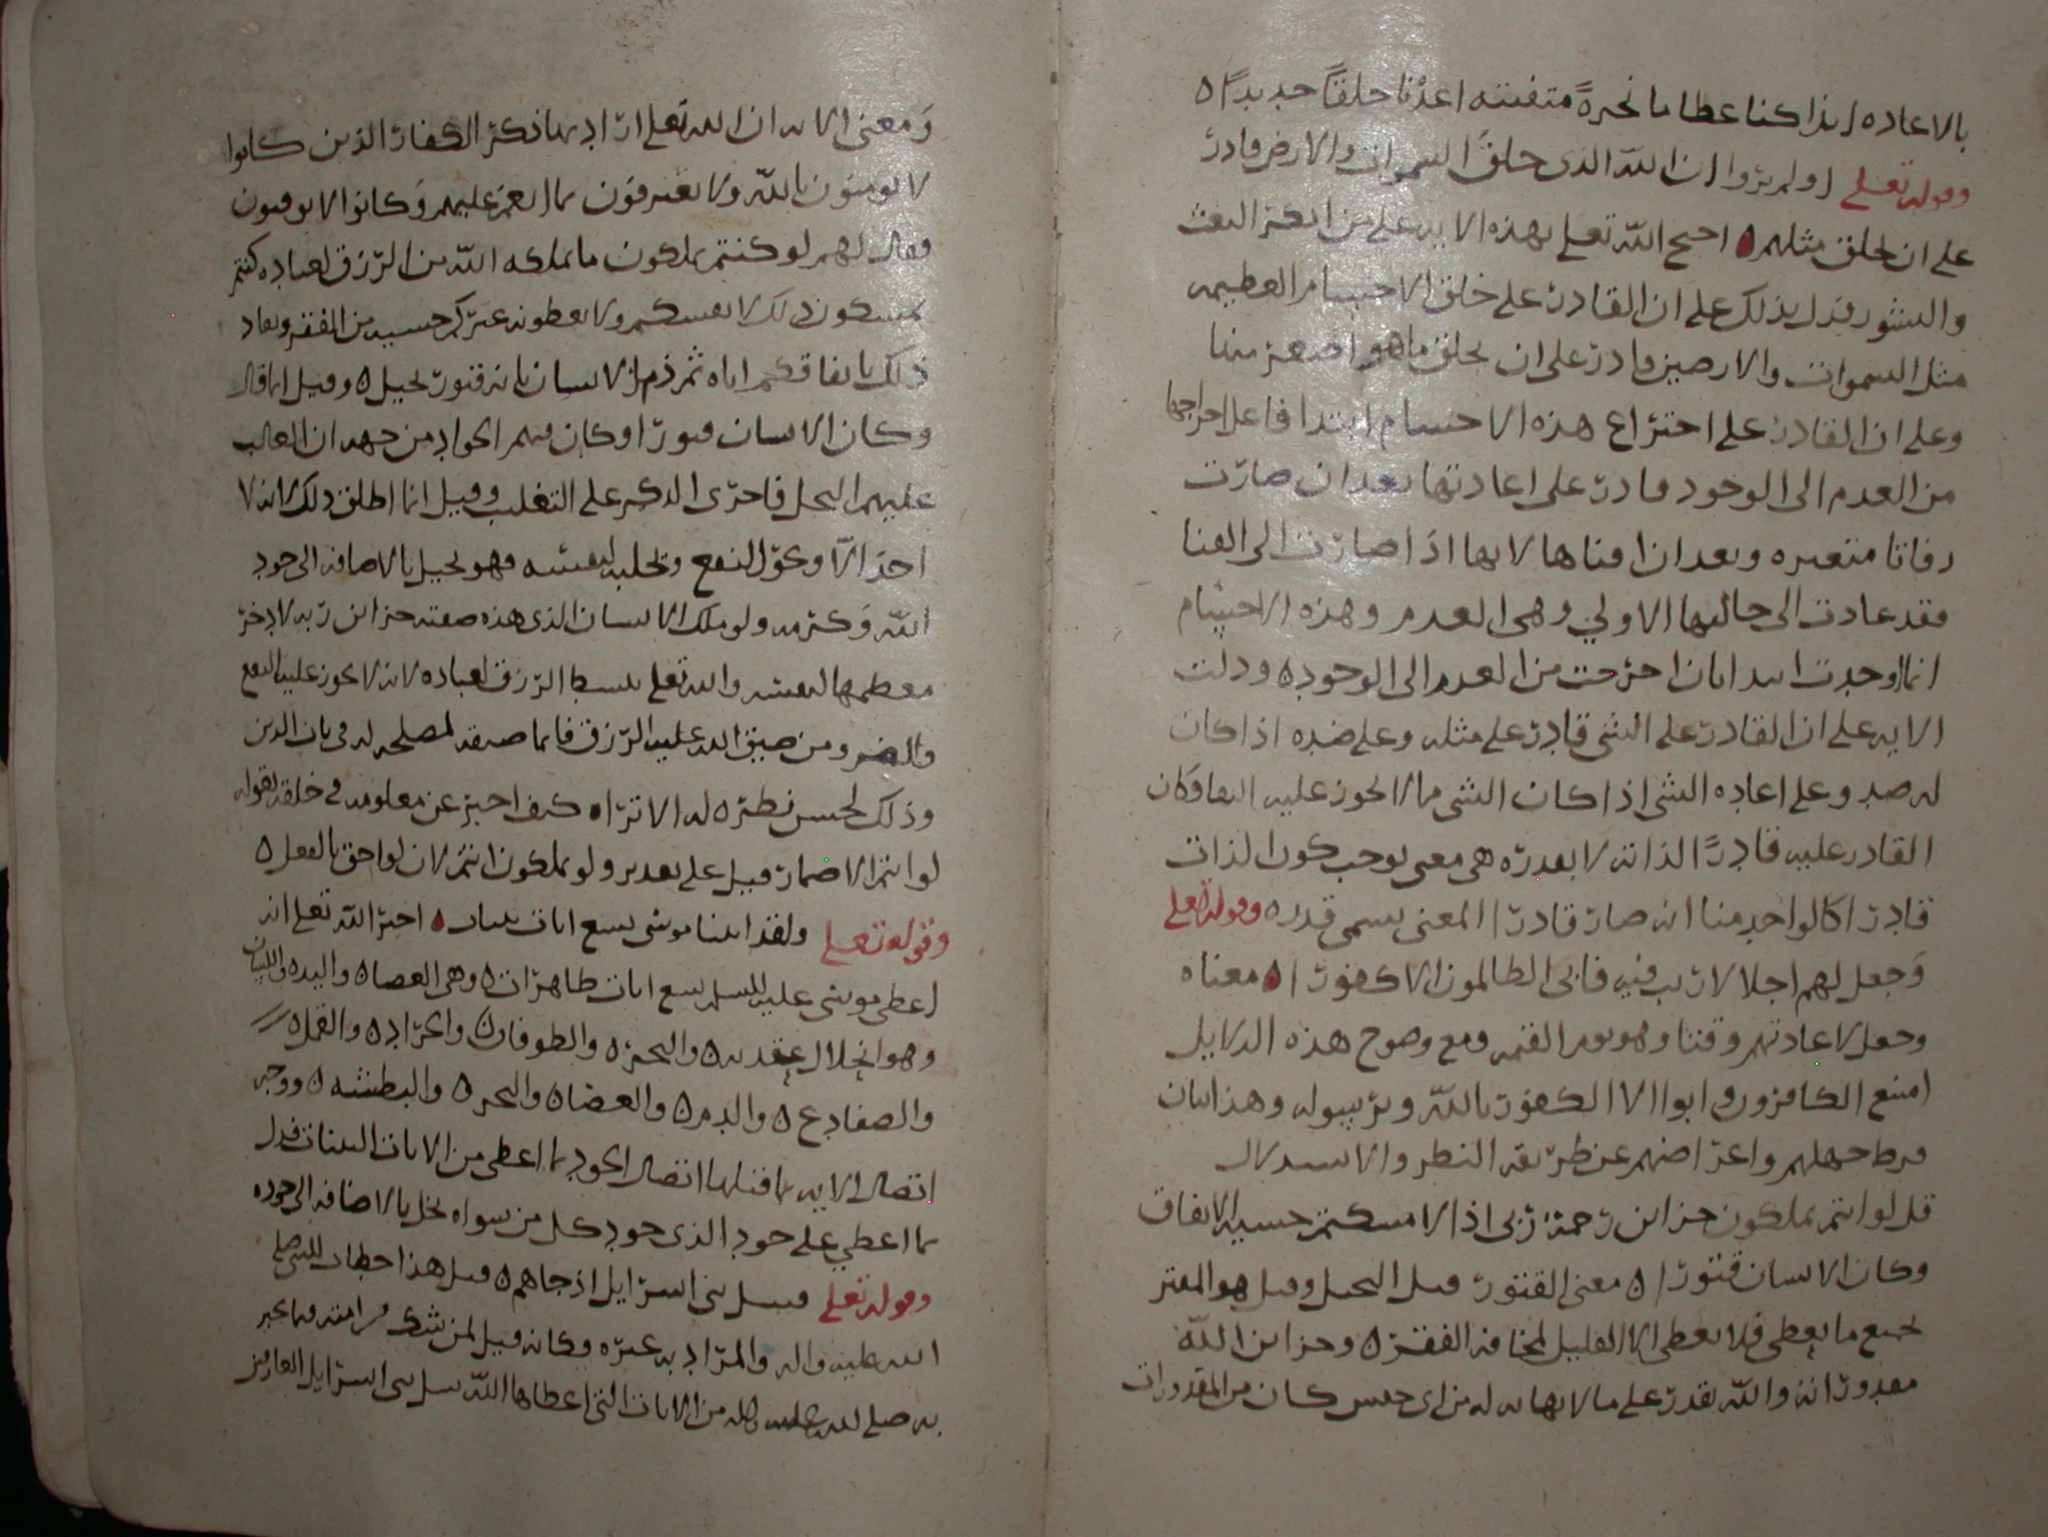 بالاعاده ائذا كنا عظاما نخرةً متفتته اعدنا خلقًا جديدًا ه
وقوله تعلى اولم يروا ان الله الذي خلق السموات والارض قادر
على ان يخلق مثلهم ه احتج الله تعلى بهذه الايه على من انكر البعث
والنشور فدل بذلك على ان القادر على خلق الاجسام العظيمه
مثل السموات والارضين قادر على ان يخلق ما هو اصغر منها
وعلى ان القادر على اختراع هذه الاجسام ابتدا فاعلا اخراجها
من العدم الى الوجود قادر على اعادتها بعد ان صارت
رفاتا متغيره وبعد ان افناها لانها اذا صارت الى الفنا
فقد عادت الى حالتها الاولي وهي العدم وهذه الاجسام
انما اوجدت ابتدا بان اخرجت من العدم الى الوجود ه ودلت
الايه على ان القادر على الشي قادر على مثله وعلى ضده اذا كان
له ضد وعلى اعاده الشي اذا كان الشي مما لا يجوز عليه البقا وكان
القادر عليه قادرًا لذاته لا بقدره هي معنى يوجب كون الذات
قادرا كالواحد منا انه صار قادرا لمعنى يسمى قدره وقوله تعلى
وجعل لهم اجلا لا ريب فيه فابى الظالمون الا كفورا ه معناه
وجعل لاعادتهم وقتا وهو يوم القيمه ومع وضوح هذه الدلايل
امتنع الكافرون وابوا الا الكفور بالله وبرسوله وهذا بيان
فرط جهلهم واعراضهم عن طريقه النظر والاستدلال
قل لو انتم تملكون خزاين رحمة ربي اذا لامسكتم خشيه الانفاق
وكان الانسان قتورا ه معنى القتور قيل البخيل وقيل هو المقتر
لجميع ما يعطي فلا يعطي الا القليل لمخافه الفقر ه وخزاين الله
مقدوراته والله يقدر على ما لا نهايه له من اي جنس كان من المقدورات
ومعنى الايه ان الله تعلى اراد بها ذكر الكفار الذين كانوا
لا يومنون بالله ولا يعترفون بما انعم عليهم وكانوا لا يوقنون
فقال لهم لو كنتم تملكون ما يملكه الله من الرزق لعباده كنتم
تمسكون ذلك لانفسكم ولا تعطونه غيركم خشيه من الفقر ونفاد
ذلك بانفاقكم اياه ثم ذم الانسان بانه قتور بخيل ه وقيل انما قال
وكان الانسان قتورا وكان فيهم الجواد من جهه ان الغالب
عليهم البخل فاجرى الذكر على التغليب وقيل انما اطلق ذلك لانه لا
احد الا ويجر النفع ويجلبه لنفسه فهو بخيل بالاضافه الى جود
الله وكرمه ولو ملك الانسان الذي هذه صفته خزاين ربه لادخر
معظمها لنفسه والله تعلى يبسط الرزق لعباده لانه لا يجوز عليه النفع
والضر ومن ضيق الله عليه الرزق فانما ضيقه لمصلحه له في باب الدين
وذلك لحسن نظره له الا تراه كيف اخبر عن معلومه في خلقه بقوله
لو انتم الاضمار قيل على تقدير ولو تملكون انتم لان لو احق بالفعل ه
وقوله تعلى ولقد اتينا موسى تسع ايات بينات ه اخبر الله تعلى انه
اعطى موسى عليه السلم تسع ايات ظاهرات ه وهي العصا ه واليد ه واللسان
وهو انحلال عقدته ه والبحر ه والطوفان ه والجراد ه والقمل ه
والضفادع ه والدم ه والعصا ه والبحر ه والبطشه ه ووجه
اتصال الايه بما قبلها اتصال الجود بما اعطى من الايات البينات فدل
بما اعطى على جوده الذي جود كل من سواه بخل بالاضافه الى جوده
وقوله تعلى فسل بني اسرايل اذ جاهم ه قيل هذا خطاب للنبي صلى
الله عليه واله والمراد به غيره وكانه قيل لمن شك من امته فيما يخبر
به صلى الله عليه واله من الايات التي اعطاها الله سل بني اسرايل العارفين